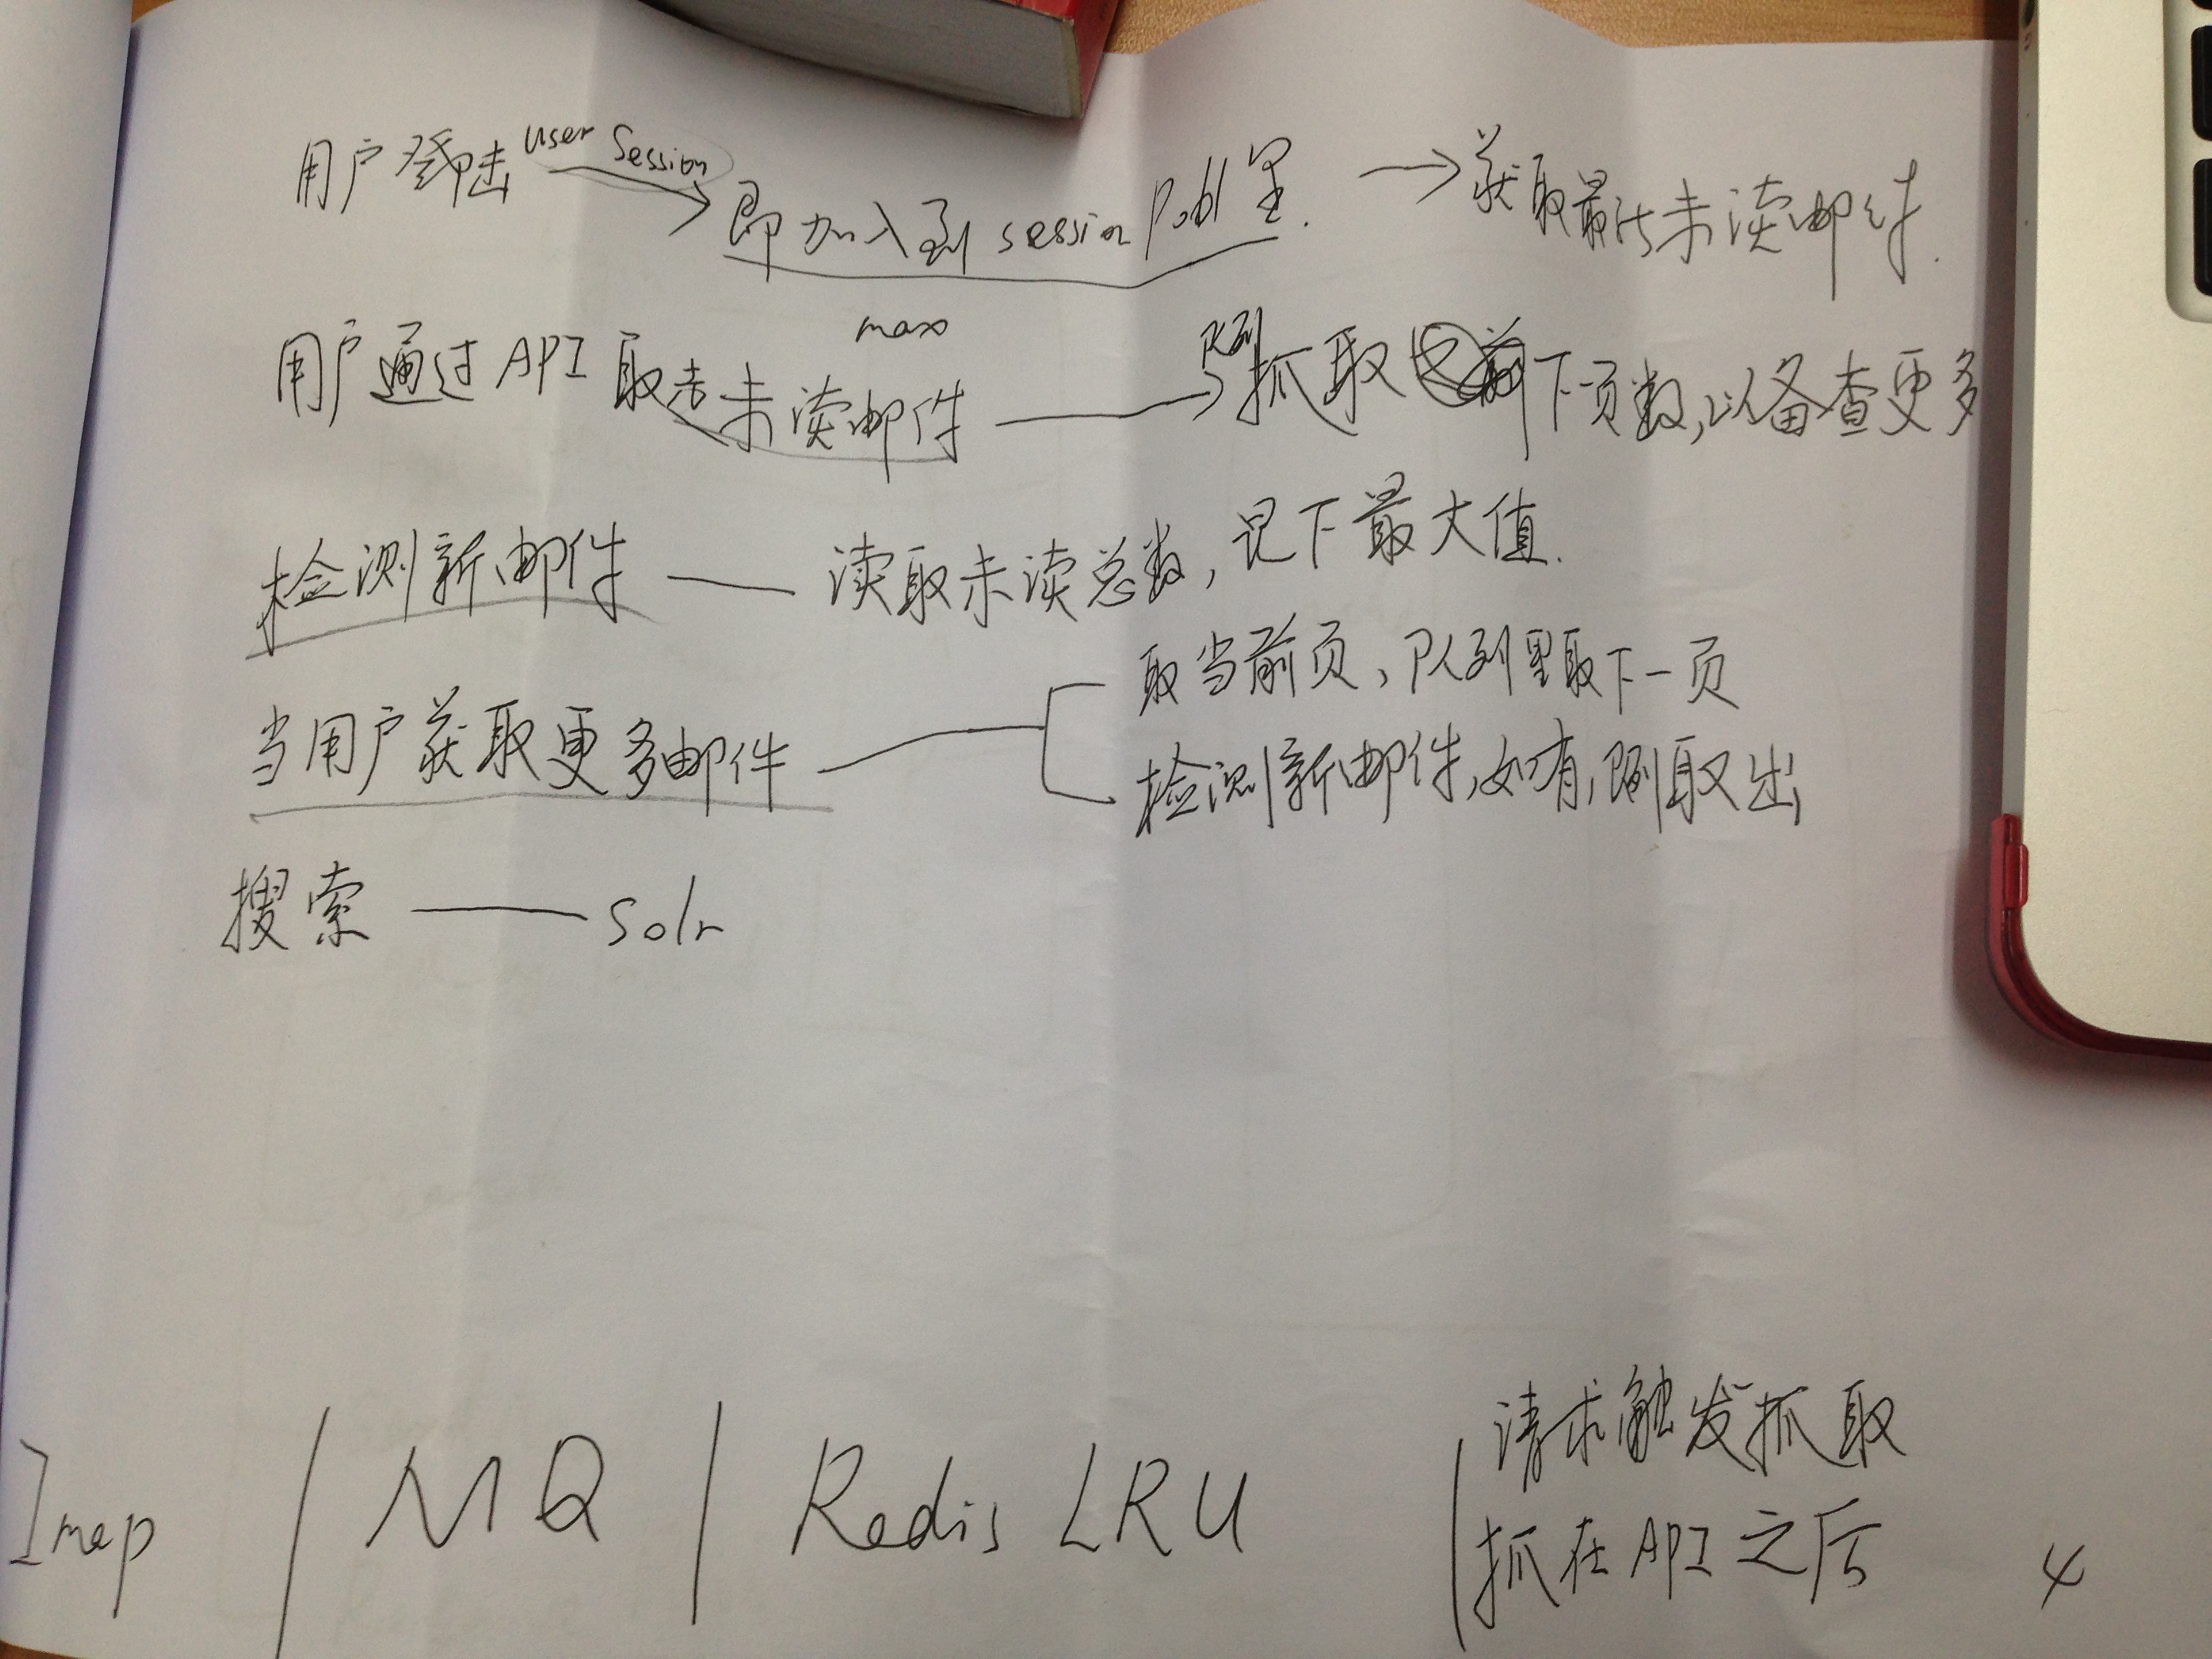 用户 User Session 即加入到 session pool 里. 获取最近未读邮件.
max
用户通过 API 取走未读邮件 抓取 下一页数,以备查更多
检测新邮件 读取未读总数,记下最大值.
当用户获取更多邮件
取当前页、队列里取下一页
检测新邮件,如有,则取出
搜索 solr
Imap MQ Redis LRU
请求触发抓取
抓在 API 之后